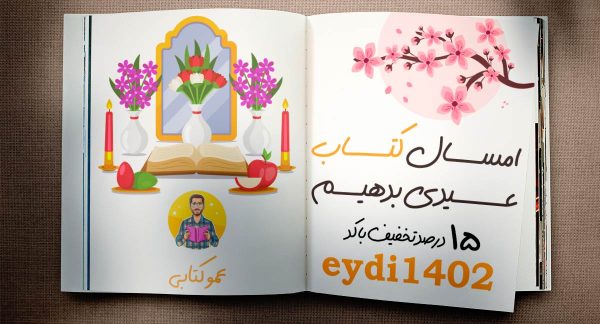 امسال کتاب
عیدی بدهیم
۱۵ درصد تخفیف با کد
eydi1402
عمو کتابی